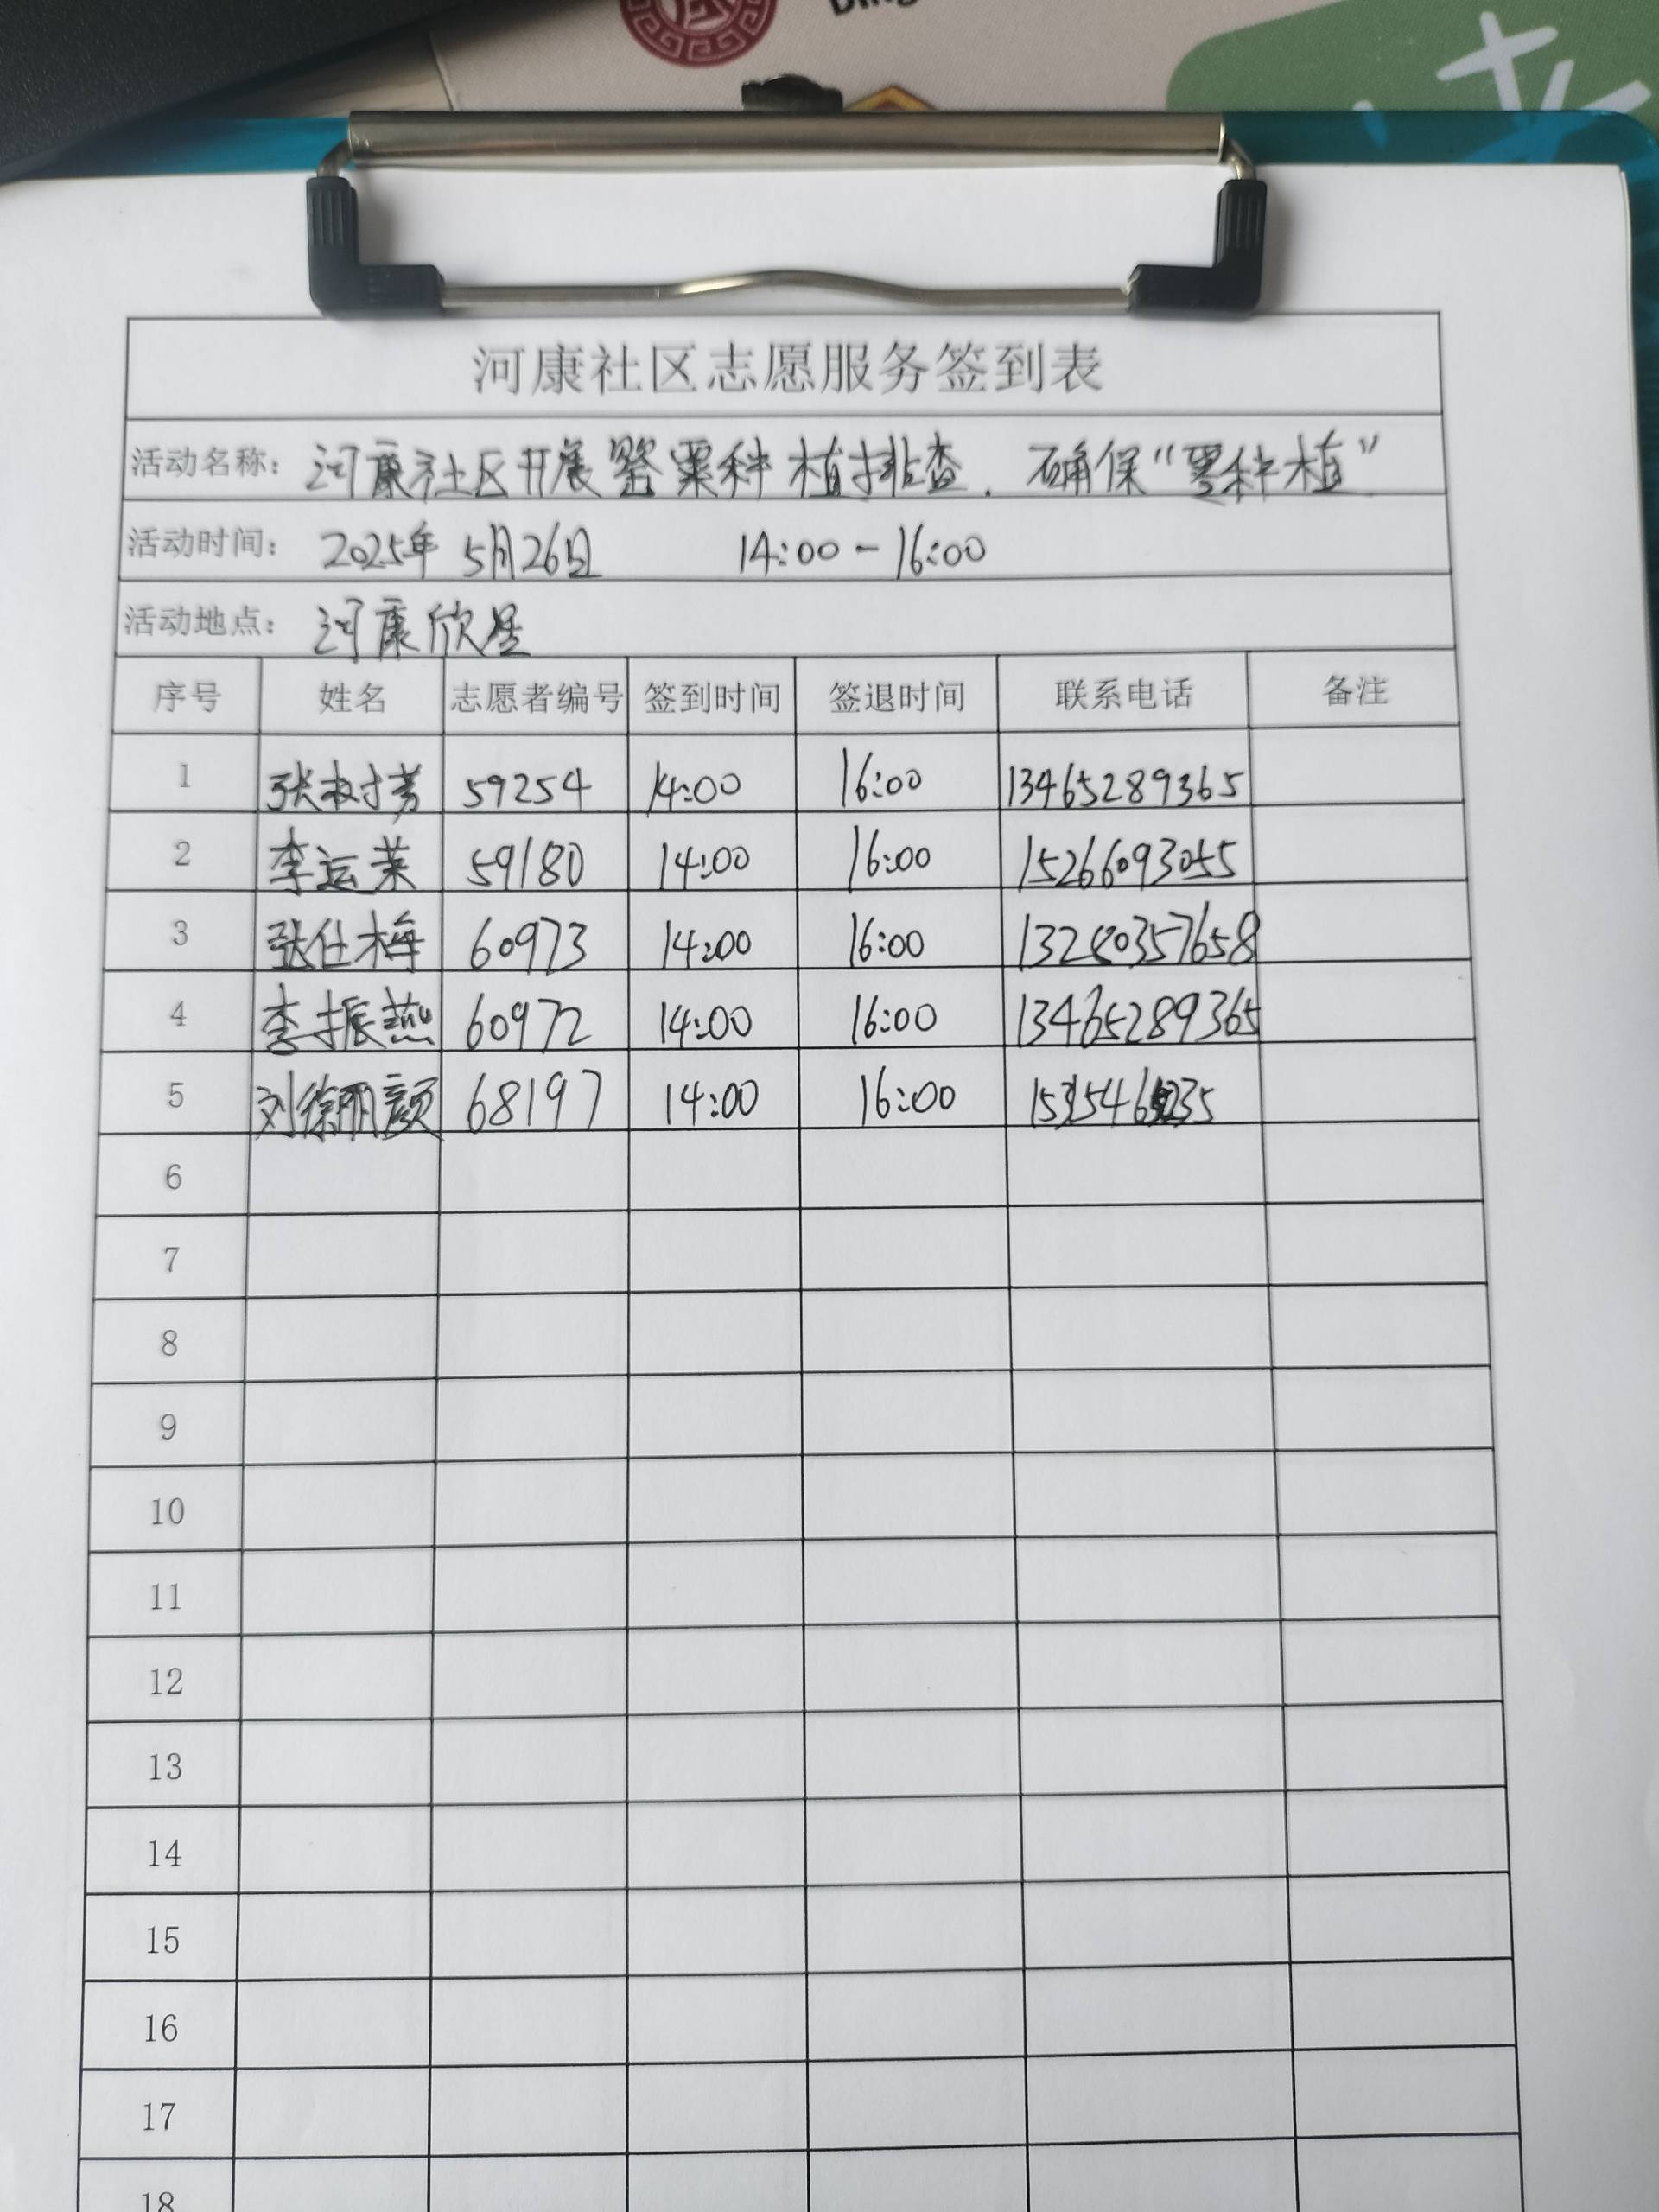 河康社区志愿服务签到表
活动名称: 河康社区开展罂粟种植排查. 确保“零种植”
活动时间: 2025年 5月26日 14:00-16:00
活动地点: 河康欣居
序号 姓名 志愿者编号 签到时间 签退时间 联系电话 备注
1 张树芳 59254 14:00 16:00 13465289365
2 李运荣 59180 14:00 16:00 15266093055
3 张仕梅 60973 14:00 16:00 13280357658
4 李振燕 60972 14:00 16:00 13465289365
5 68197 14:00 16:00
6
7
8
9
10
11
12
13
14
15
16
17
18